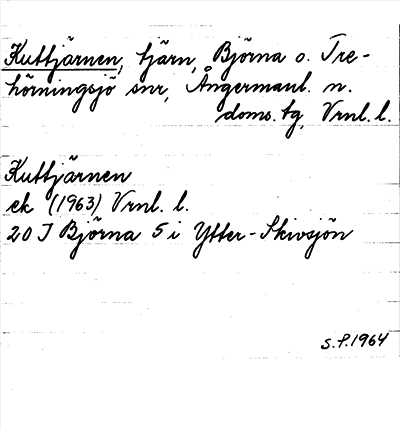 Kuttjärnen, tjärn, Björna o. Tre-
hörningsjö snr, Ångermanl. n.
doms. tg, Vrnl. l.
Kuttjärnen
ek (1963) Vrnl. l.
20 I Björna 5 i Ytter-Skivsjön
S.F. 1964